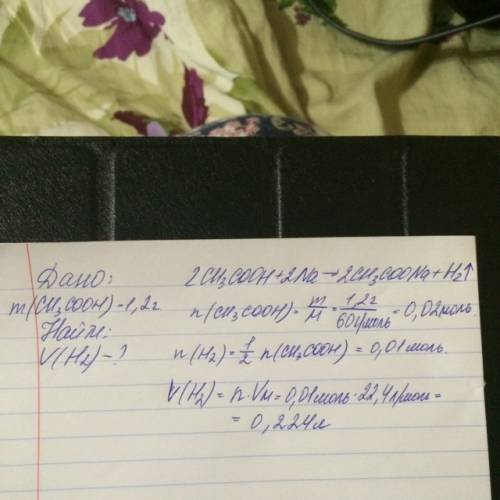 Дано:
m(CH₃COOH)=1,2г
Найти:
V(H₂)-?
2CH₃COOH+2Na→2CH₃COONa+H₂↑
n(CH₃COOH)=m/M=1,2г/60г/моль=0,02моль
n(H₂)=1/2 n(CH₃COOH)=0,01моль.
V(H₂)=n·Vм=0,01моль·22,4л/моль=
=0,224л